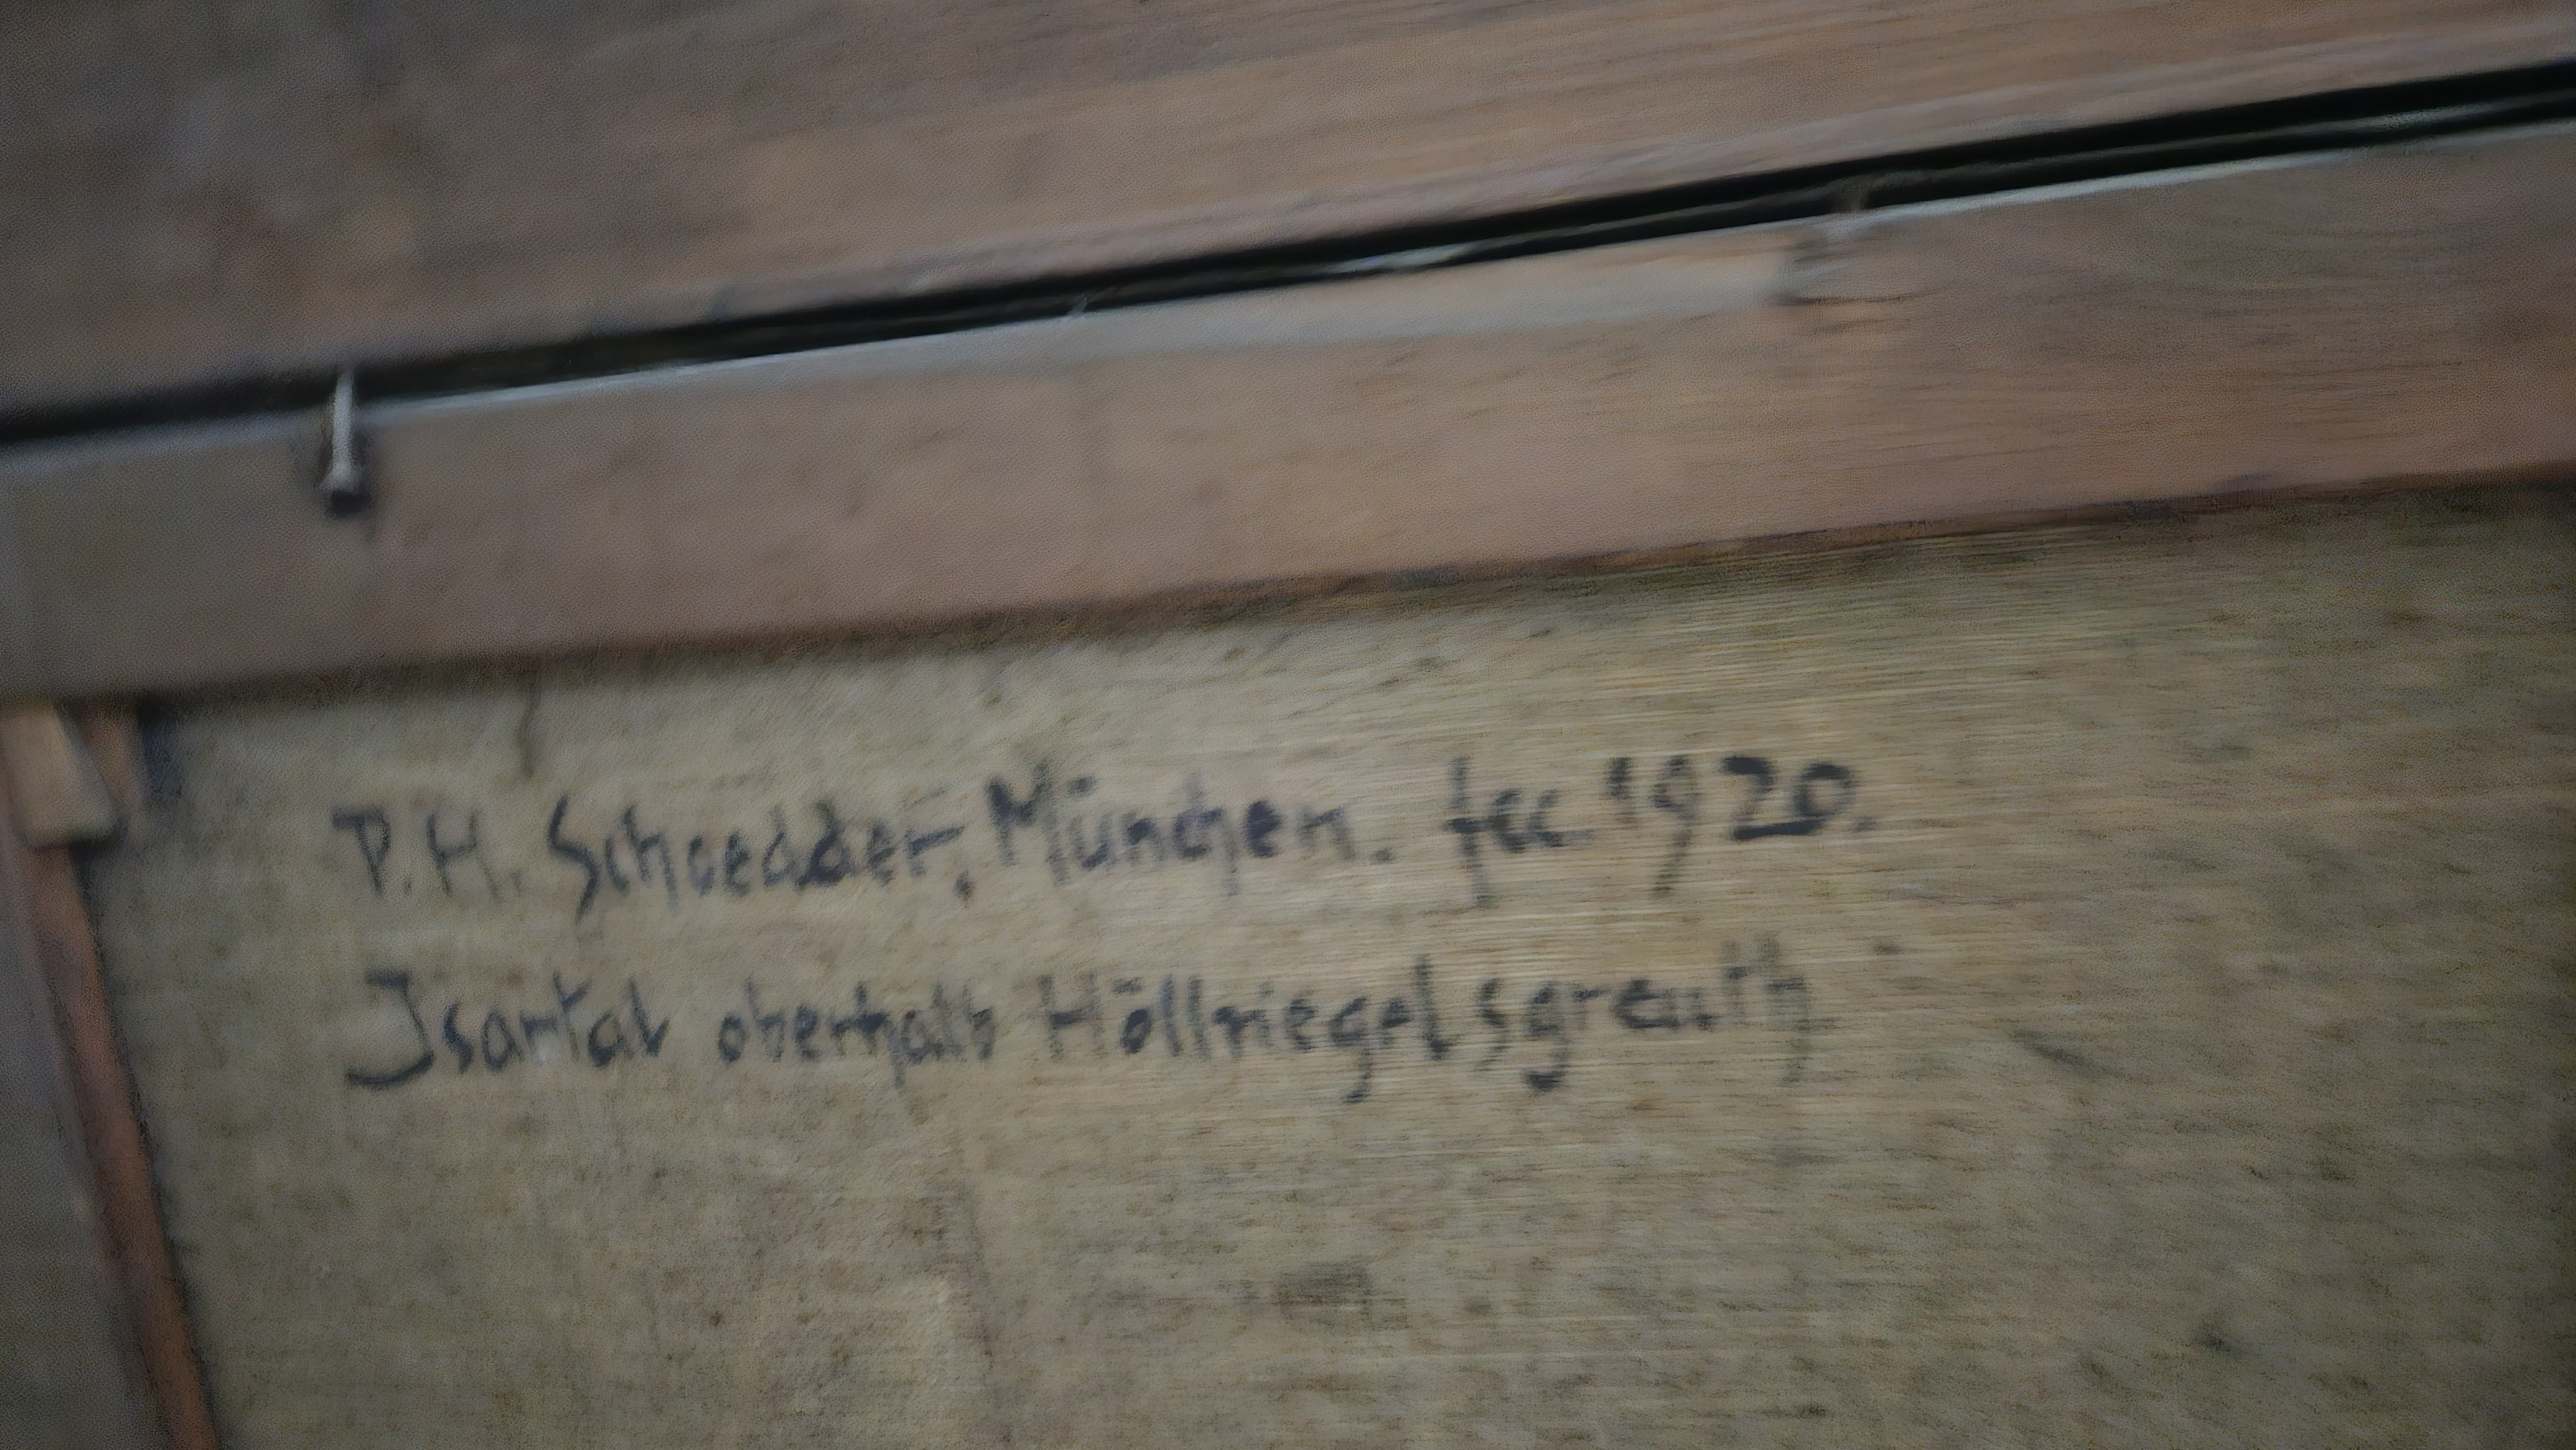 P.H. Schoedder, München. fec 1920.
Isartal oberhalb Höllriegelsgreuth